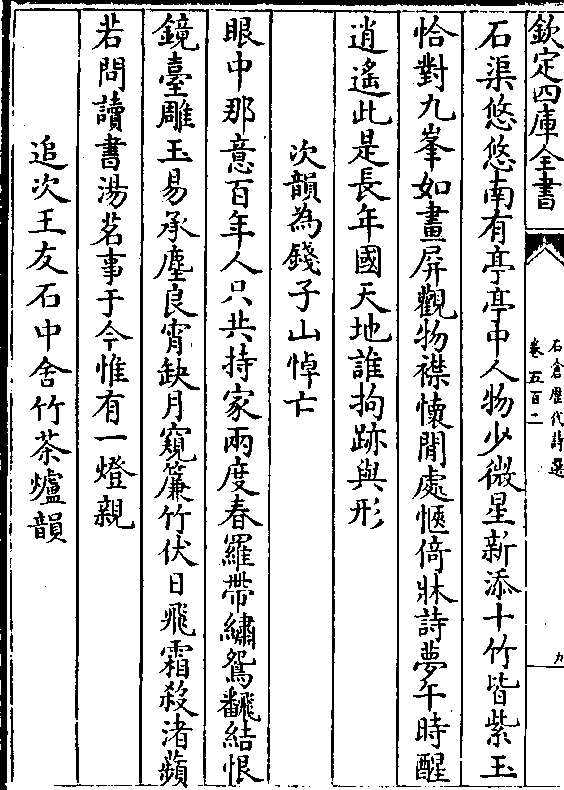 欽定四庫全書
石倉歷代詩選
卷五百二
九
石渠悠悠南有亭亭中人物少微星新添十竹皆紫玉
恰對九峯如畫屏觀物襟懷閒處愜倚牀詩夢午時醒
逍遙此是長年國天地誰拘跡與形
次韻為錢子山悼亡
眼中那意百年人只共持家兩度春羅帶繡鴛翻結恨
鏡臺雕玉易承塵良宵缺月窺簾竹伏日飛霜殺渚蘋
若問讀書湯茗事于今惟有一燈親
追次王友石中舍竹茶爐韻